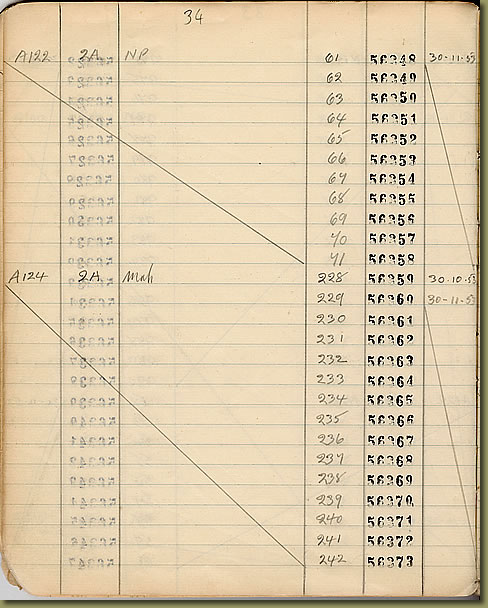 34
A122 2A NP 61 56348 30-11-53
62 56349
63 56350
64 56351
65 56352
66 56353
67 56354
68 56355
69 56356
70 56357
71 56358
A124 2A Mah 228 56359 30-10-53
229 56360 30-11-53
230 56361
231 56362
232 56363
233 56364
234 56365
235 56366
236 56367
237 56368
238 56369
239 56370
240 56371
241 56372
242 56373